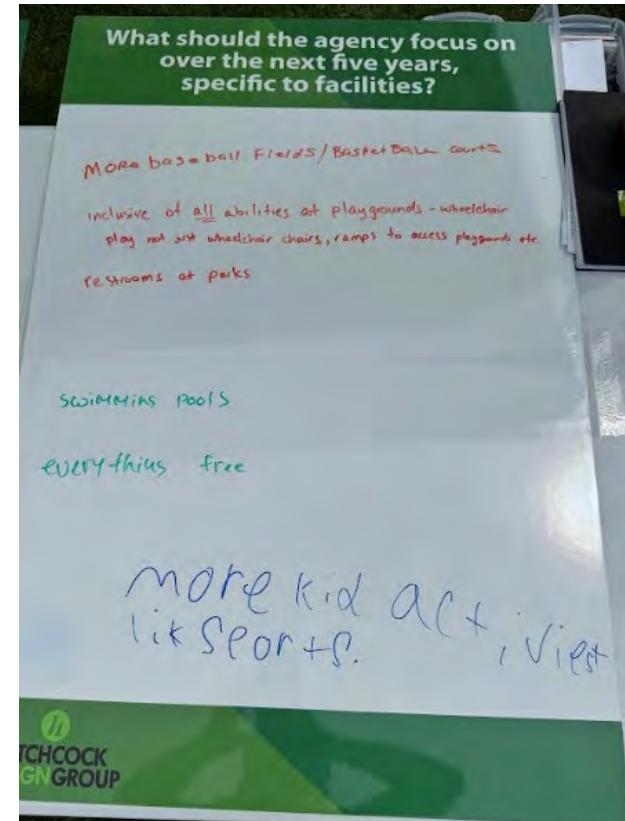 What should the agency focus on
over the next five years,
specific to facilities?
More baseball Fields/BasketBall courts
inclusive of all abilities at playgrounds - wheelchair
play not just wheelchair chairs, ramps to access playgrounds etc.
restrooms at parks
swimming pools
everything free
more kid act,iviest
lik Seorts.
TCHCOCK
GN GROUP